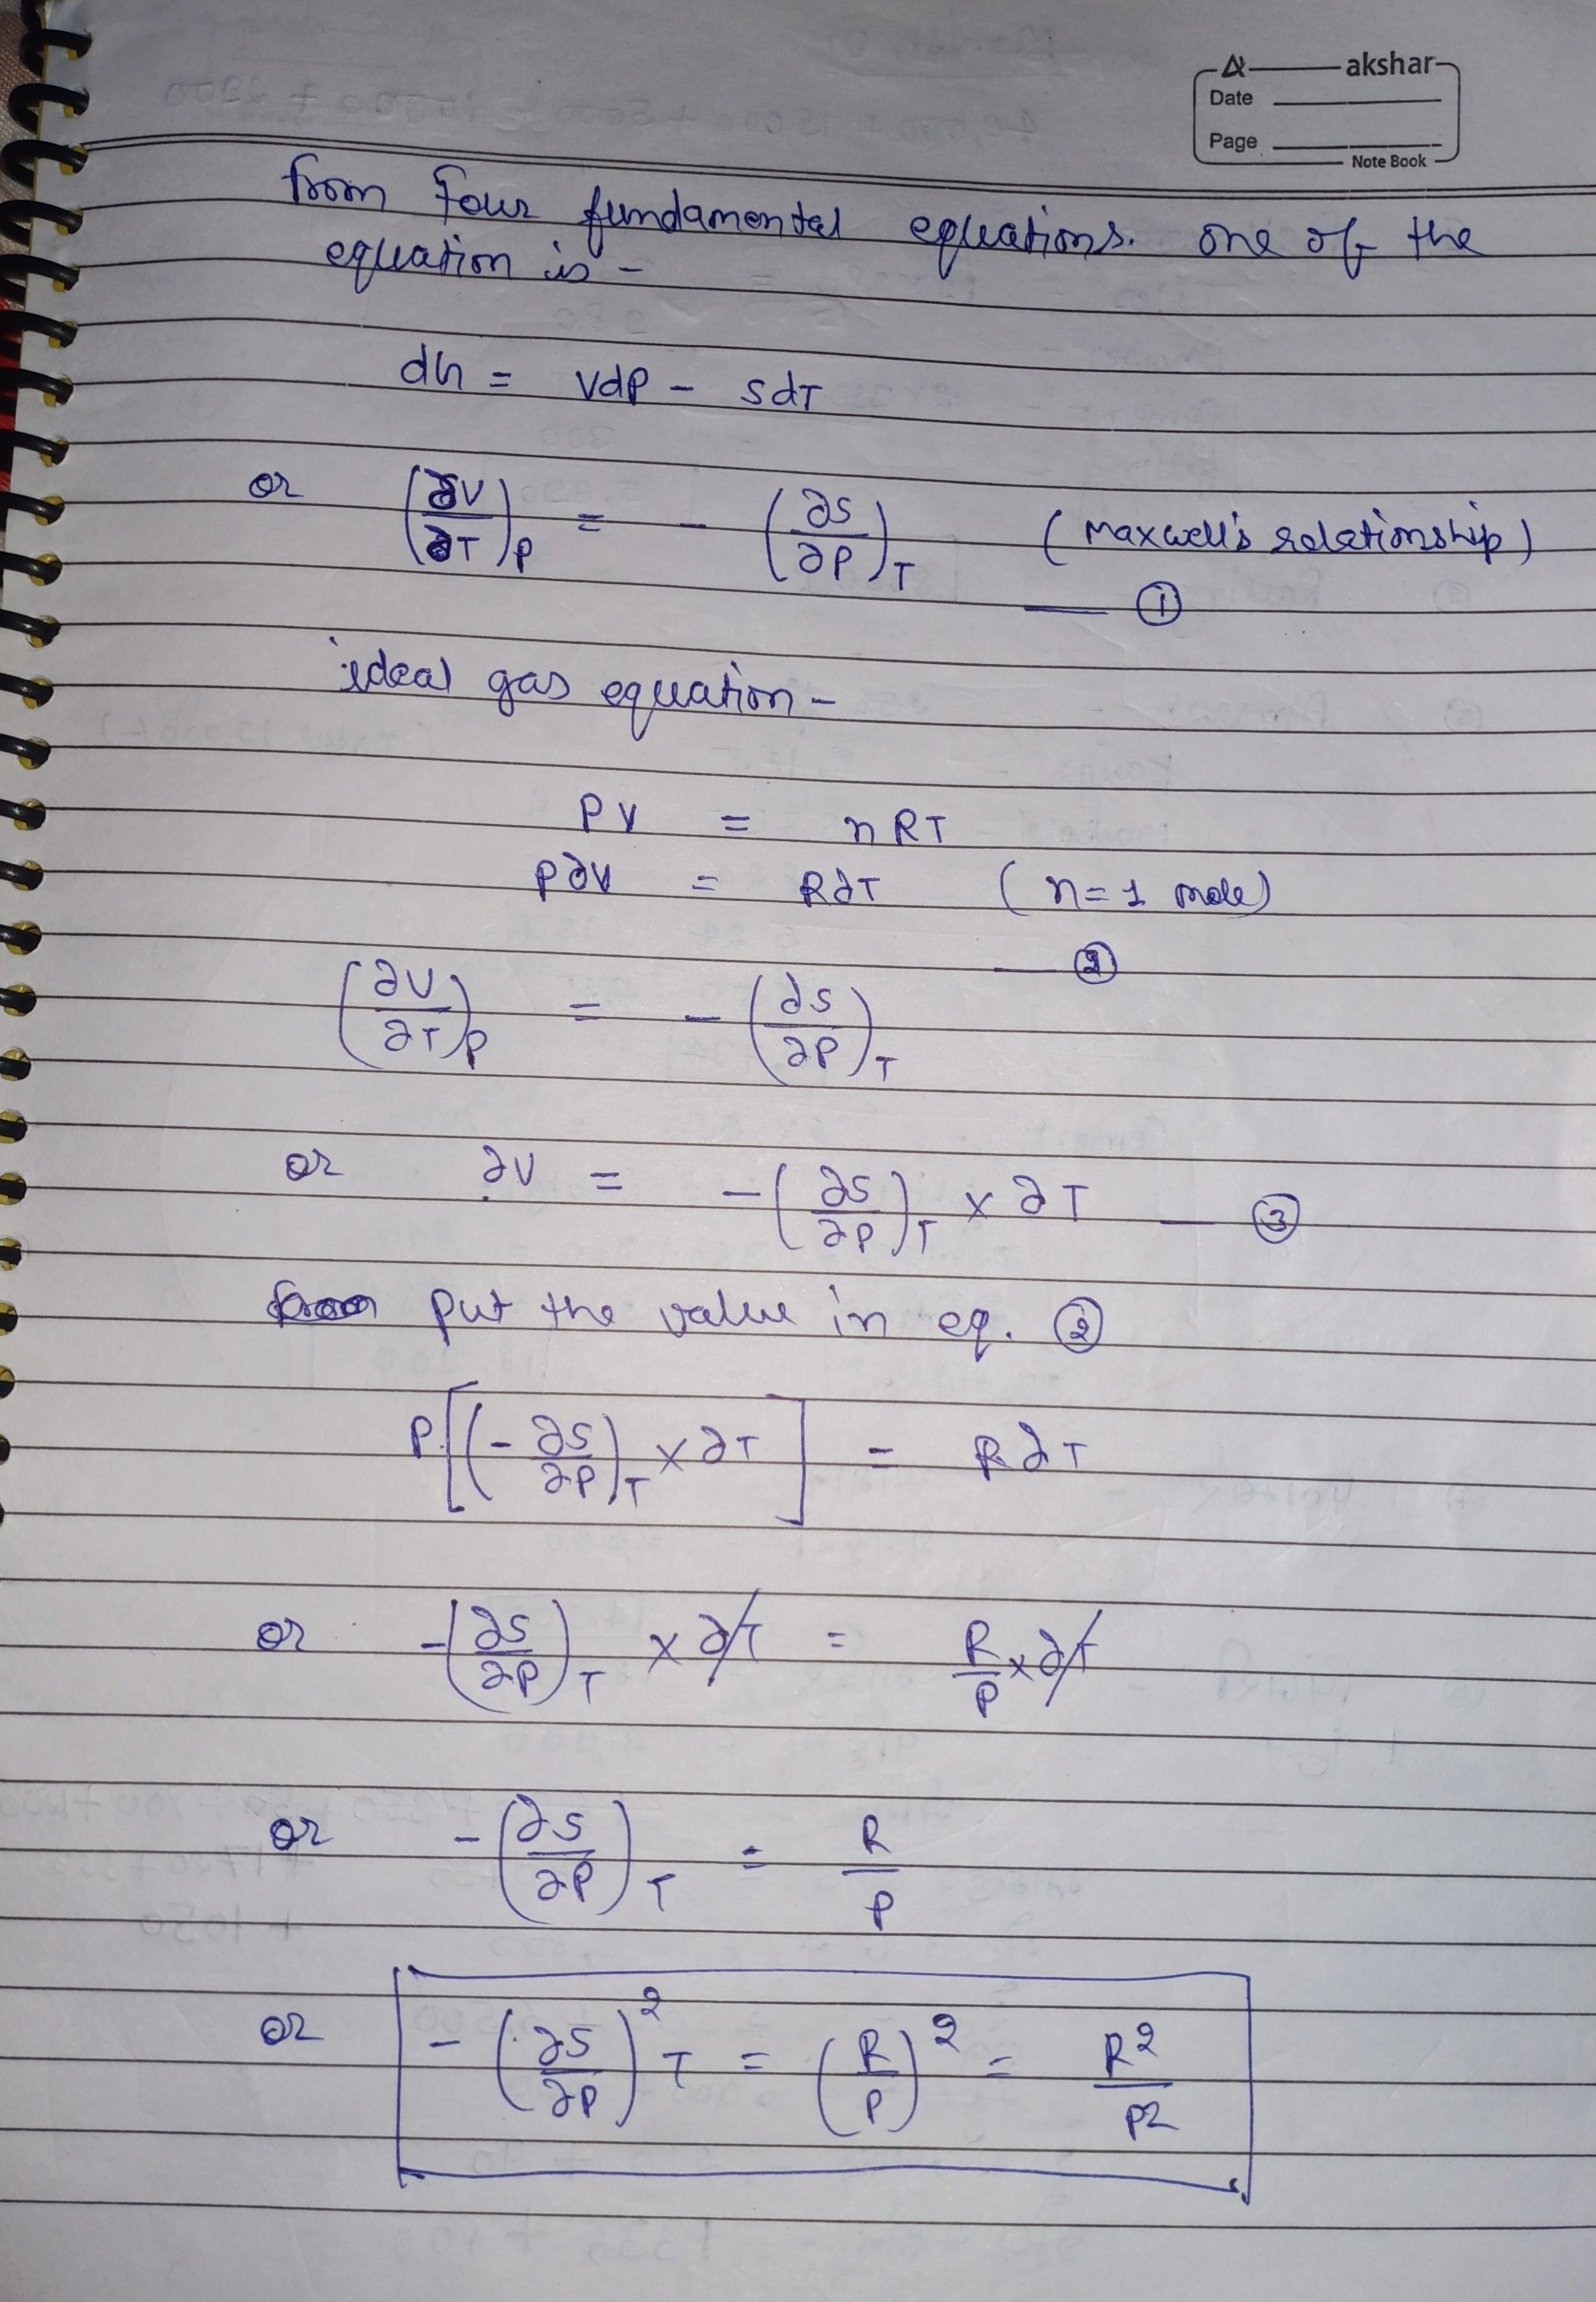 akshar
Date
Page
Note Book
from four fundamental equations. one of the
equation is -
dG = VdP - SdT
or (∂V/∂T)P = - (∂S/∂P)T (Maxwell's relationship)
— ①
ideal gas equation -
PV = nRT
P∂V = R∂T (n=1 mole)
— ②
(∂V/∂T)P = - (∂S/∂P)T
or ∂V = -(∂S/∂P)T × ∂T — ③
put the value in eq. ②
P[(-∂S/∂P)T × ∂T] = R∂T
or -(∂S/∂P)T × ∂T = R/P × ∂T
or -(∂S/∂P)T = R/P
or -(∂S/∂P)²T = (R/P)² = R²/P²